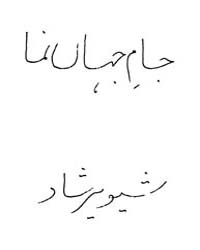 جامِ جہاں نما
شیو پرشاد